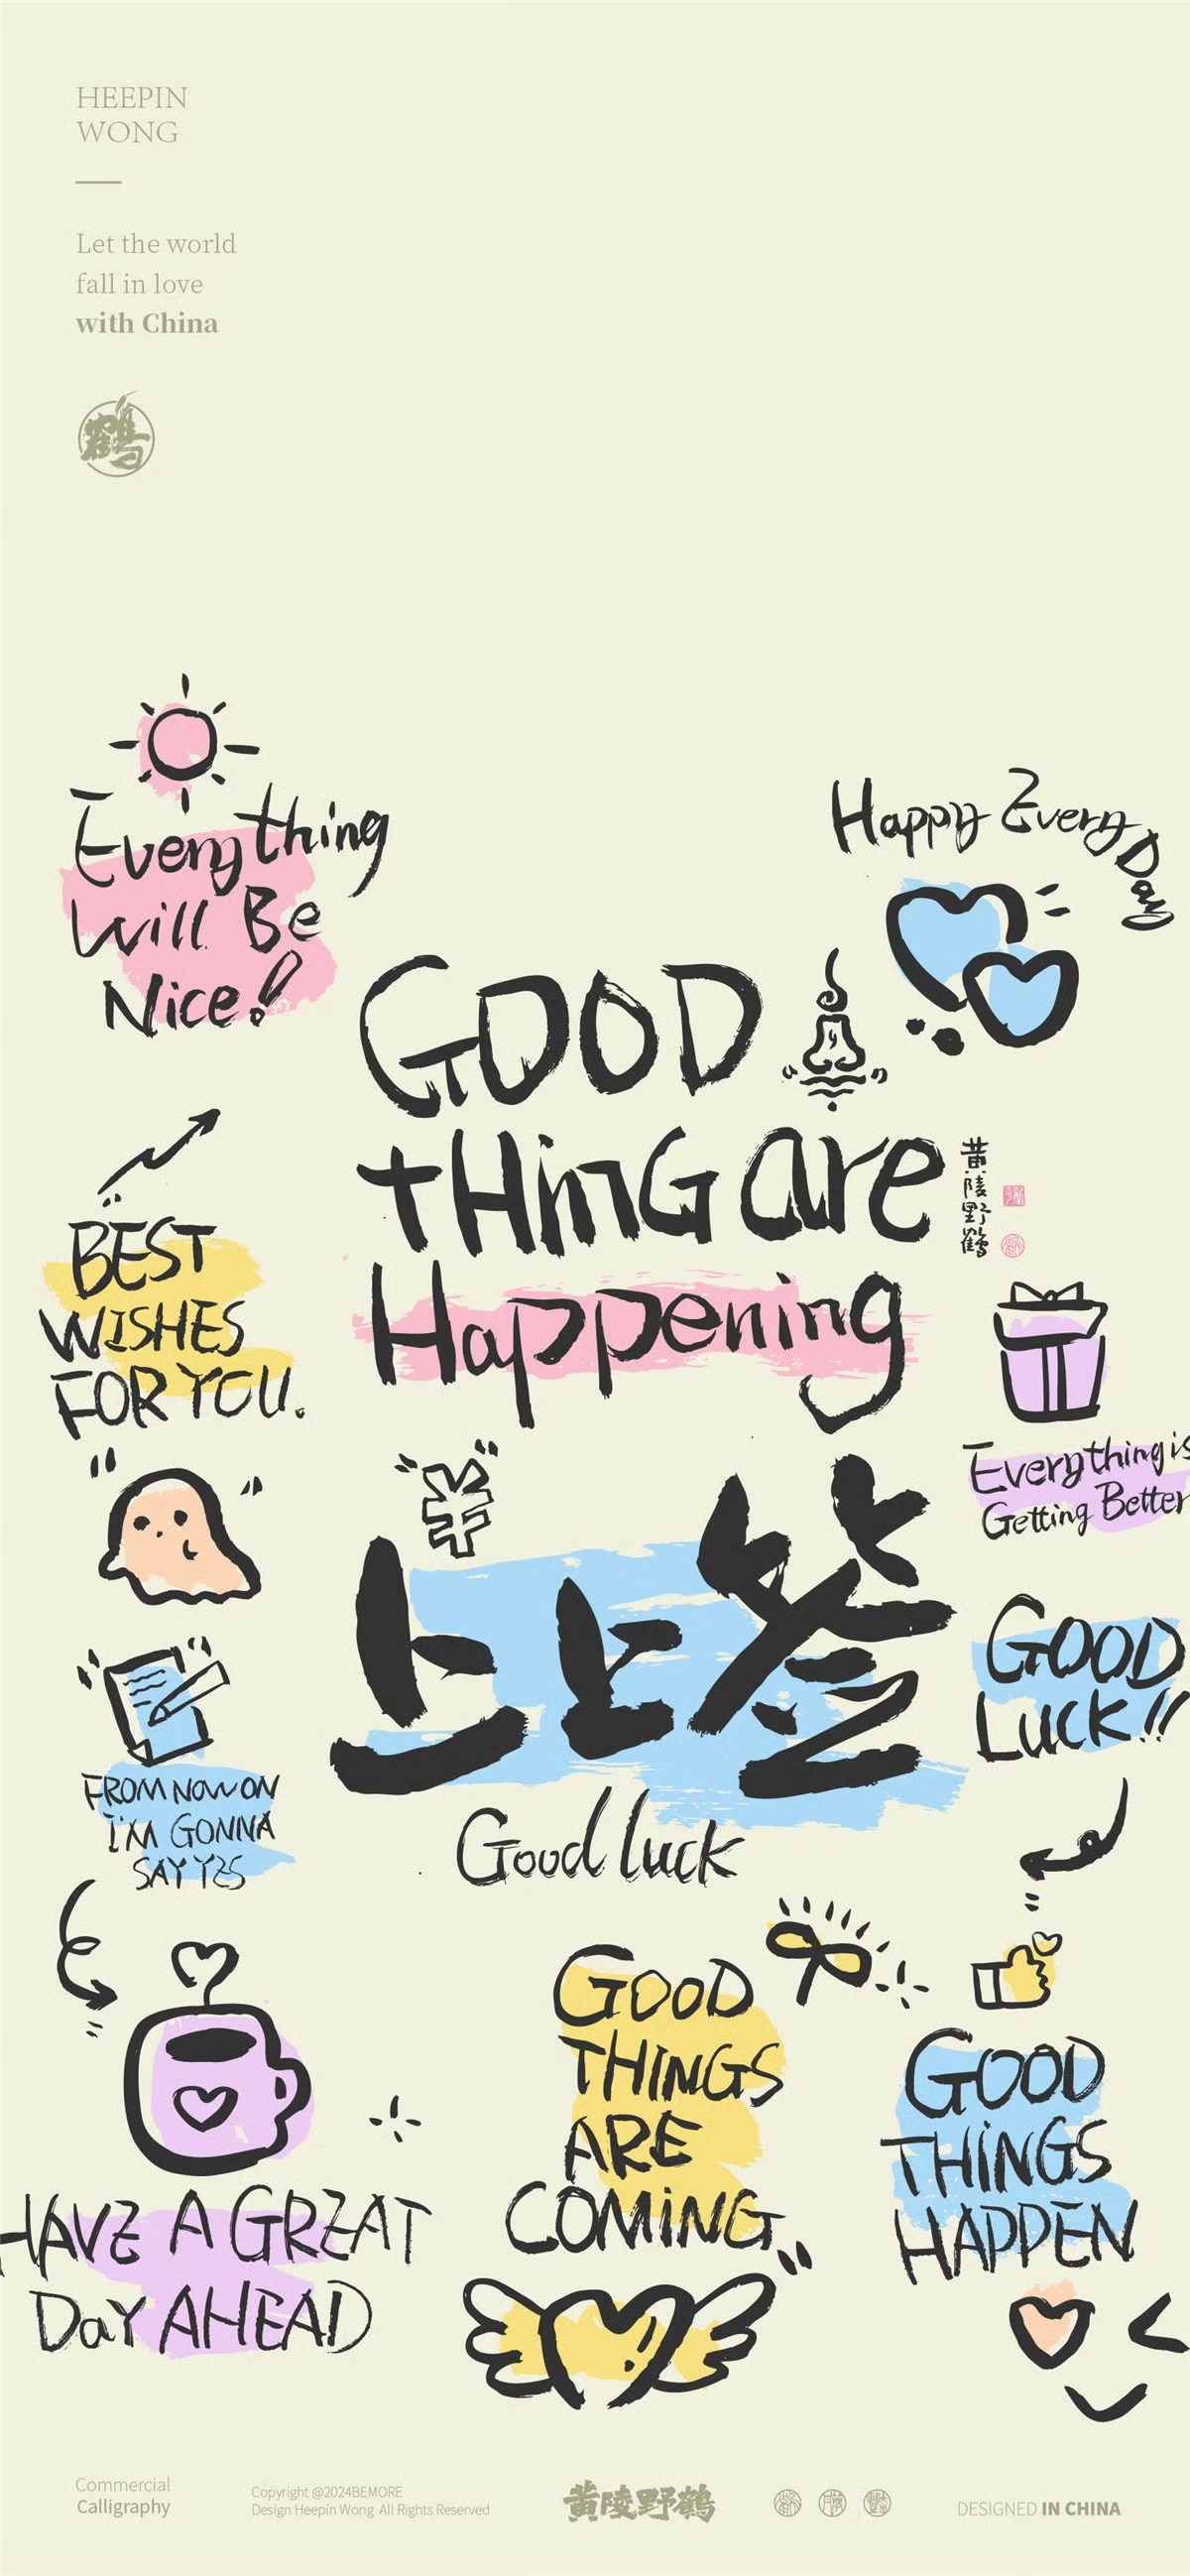 HEEPIN
WONG
Let the world
fall in love
with China
鹤
Everything
Will Be
Nice!
Happy Every Day
GOOD
tHinG are
Happening
黄陵野鹤
BEST
WISHES
FOR YOU.
Everything is
Getting Better
¥
上上签
Good luck
GOOD
LUCK!!
FROM NOW ON
I'M GONNA
SAY YES
GOOD
THINGS
ARE
COMING
GOOD
THINGS
HAPPEN
HAVE A GREAT
DaY AHEAD
Commercial
Calligraphy
Copyright @2024BEMORE
Design Heepin Wong All Rights Reserved
黄陵野鹤
DESIGNED IN CHINA